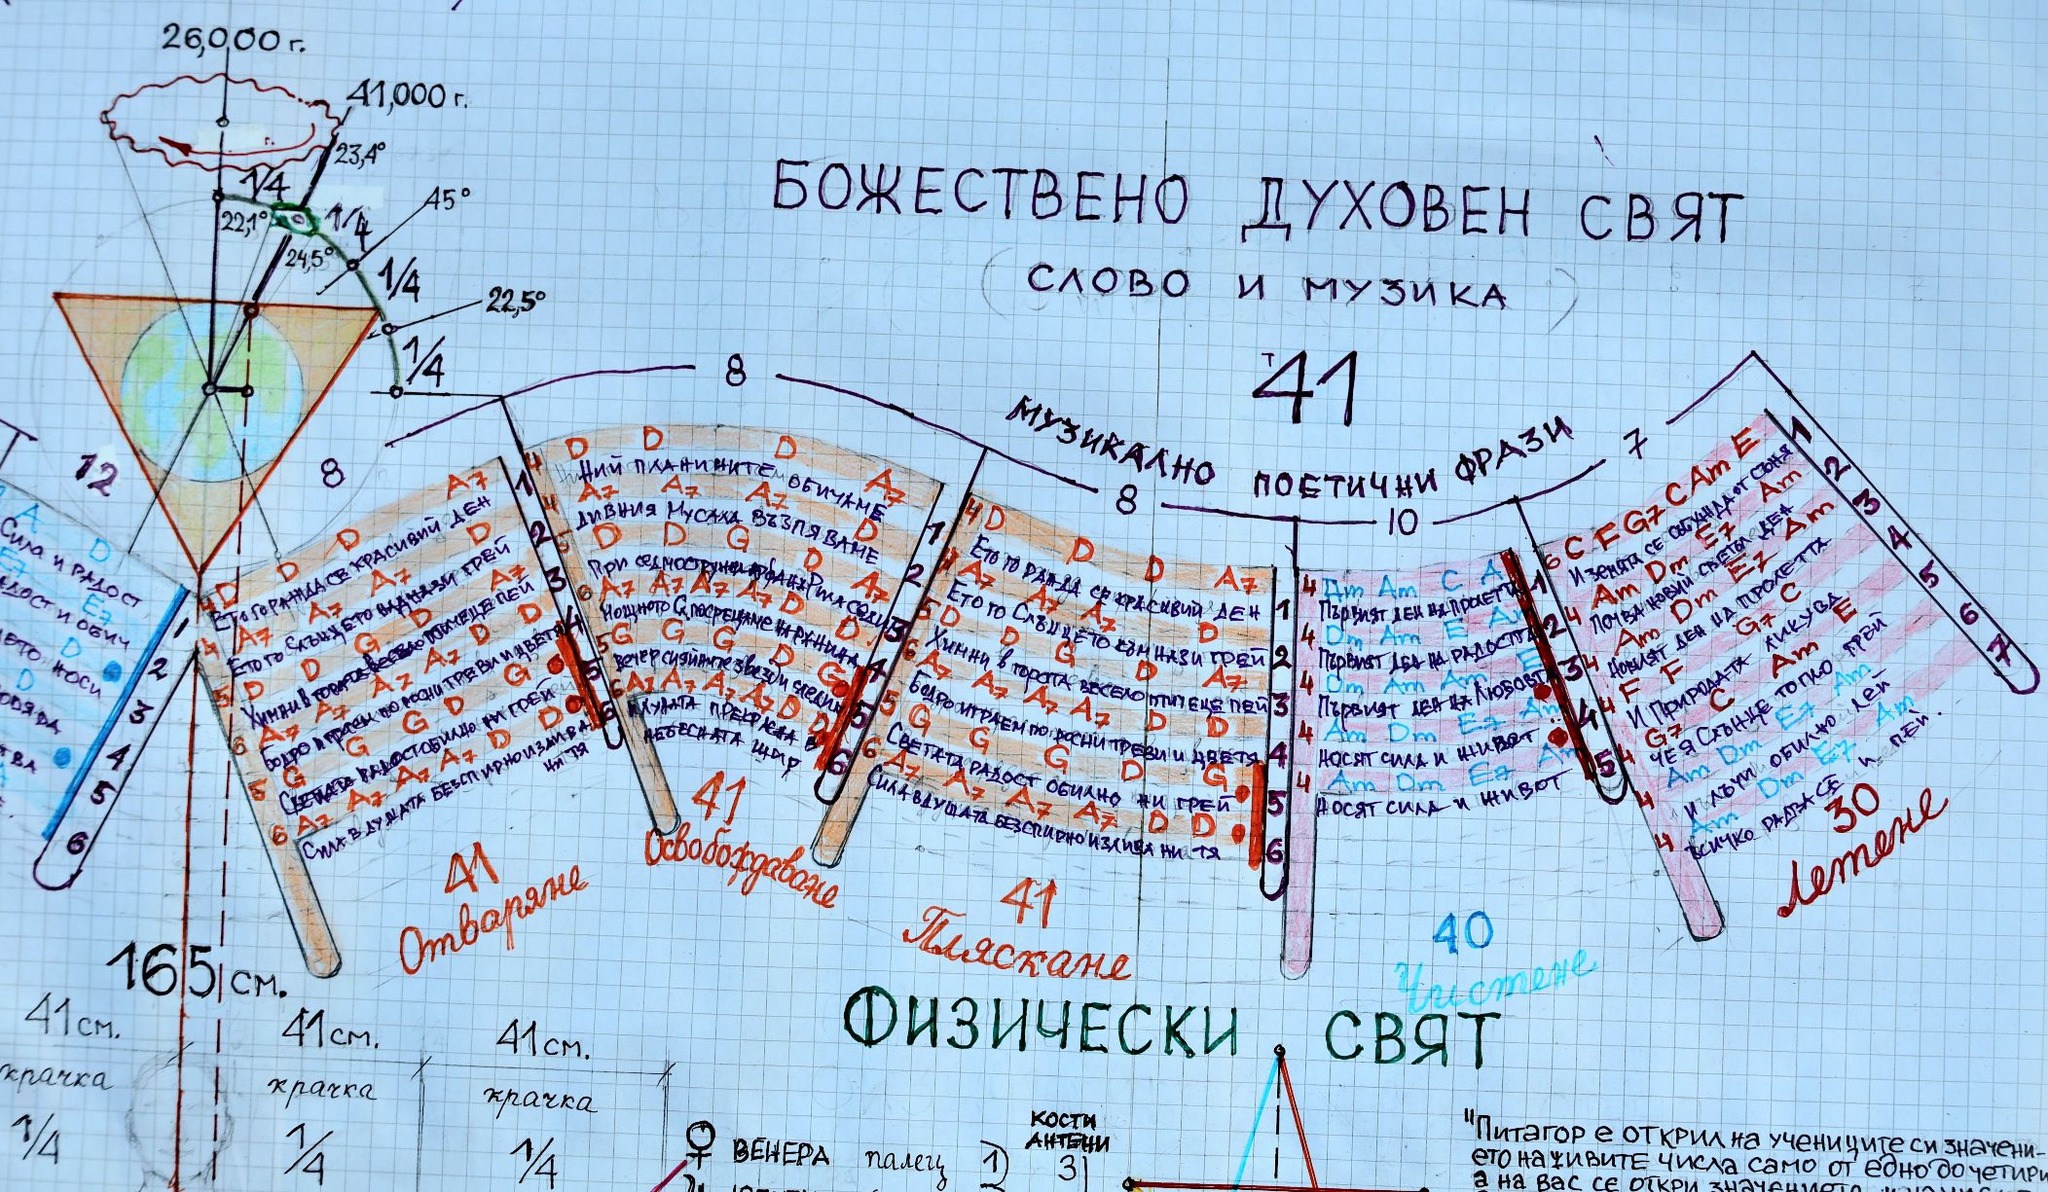 26,000 г.
41,000 г.
23,4°
1/4
22,1°
1/4
45°
24,5°
1/4
22,5°
1/4
БОЖЕСТВЕНО ДУХОВЕН СВЯТ
(СЛОВО И МУЗИКА)
т
41
МУЗИКАЛНО ПОЕТИЧНИ ФРАЗИ
12
8
8
8
10
7
A D
Сила и радост
E7
D
D
1
2
3
4
5
6
4 D D D A7
Ето го ражда се красивий ден
4 A7 A7 A7 D
Ето го Слънцето към нази грей
5 D D G D A7
Химни в гората весело птиците пей
6 A7 A7 A7 A7 D D
Бодро играем по росни треви и цветя
5 G G G D G
Светата радост обилно ни грей
6 A7 A7 A7 A7 D D
Сила в душата безспирно излива
ни тя
1
2
3
4
5
6
41
Отваряне
4 D D D A7
Ний планините обичаме
4 A7 A7 A7 D
дивния Мусала възпяваме
5 D D G D A7
При седмострунна
6 A7 A7 A7 A7 D D
нощното посрещаме на ранина
5 G G G D G
вечер сияйните звезди
6 A7 A7 A7 A7 D D
и луната прекрасна в
небесната шир
1
2
3
4
5
6
41
Освобождаване
4 D D D A7
Ето го ражда се красивий ден
4 A7 A7 A7 D
Ето го Слънцето към нази грей
5 D D G D A7
Химни в гората весело птиците пей
6 A7 A7 A7 A7 D D
Бодро играем по росни треви и цветя
5 G G G D G
Светата радост обилно ни грей
6 A7 A7 A7 A7 D D
Сила в душата безспирно излива ни тя
1
2
3
4
5
6
41
Пляскане
4 Dm Am C A
Първият ден на пролетта
4 Dm Am E Am
Първият ден на радостта
4 Dm Am Am E
Първият ден на любовта
4 Am Dm E7 Am
носят сила и живот
4 Am Dm E7 A
носят сила и живот
1
2
3
4
5
40
Чистене
6 C F G7 C Am E
Изгрята се събужда от съня
4 Am Dm E7 Am
Почва новий светъл ден
4 Am Dm E7 Am
Новият ден на пролетта
4 F F G7 C
И Природата ликува
4 G7 C Am E
че я Слънце топло грей
4 Am Dm E7 Am
и лъчи обилно лей
4 Am Dm E7 Am
всичко радва се и пей.
1
2
3
4
5
6
7
30
Летене
165 см.
41 см.
41 см.
41 см.
крачка
крачка
крачка
1/4
1/4
1/4
ФИЗИЧЕСКИ СВЯТ
♀ ВЕНЕРА палец 1)
КОСТИ
АНТЕНИ
3
"Питагор е открил на учениците си значени-
ето на живите числа само от едно до четири
а на вас се откри значението